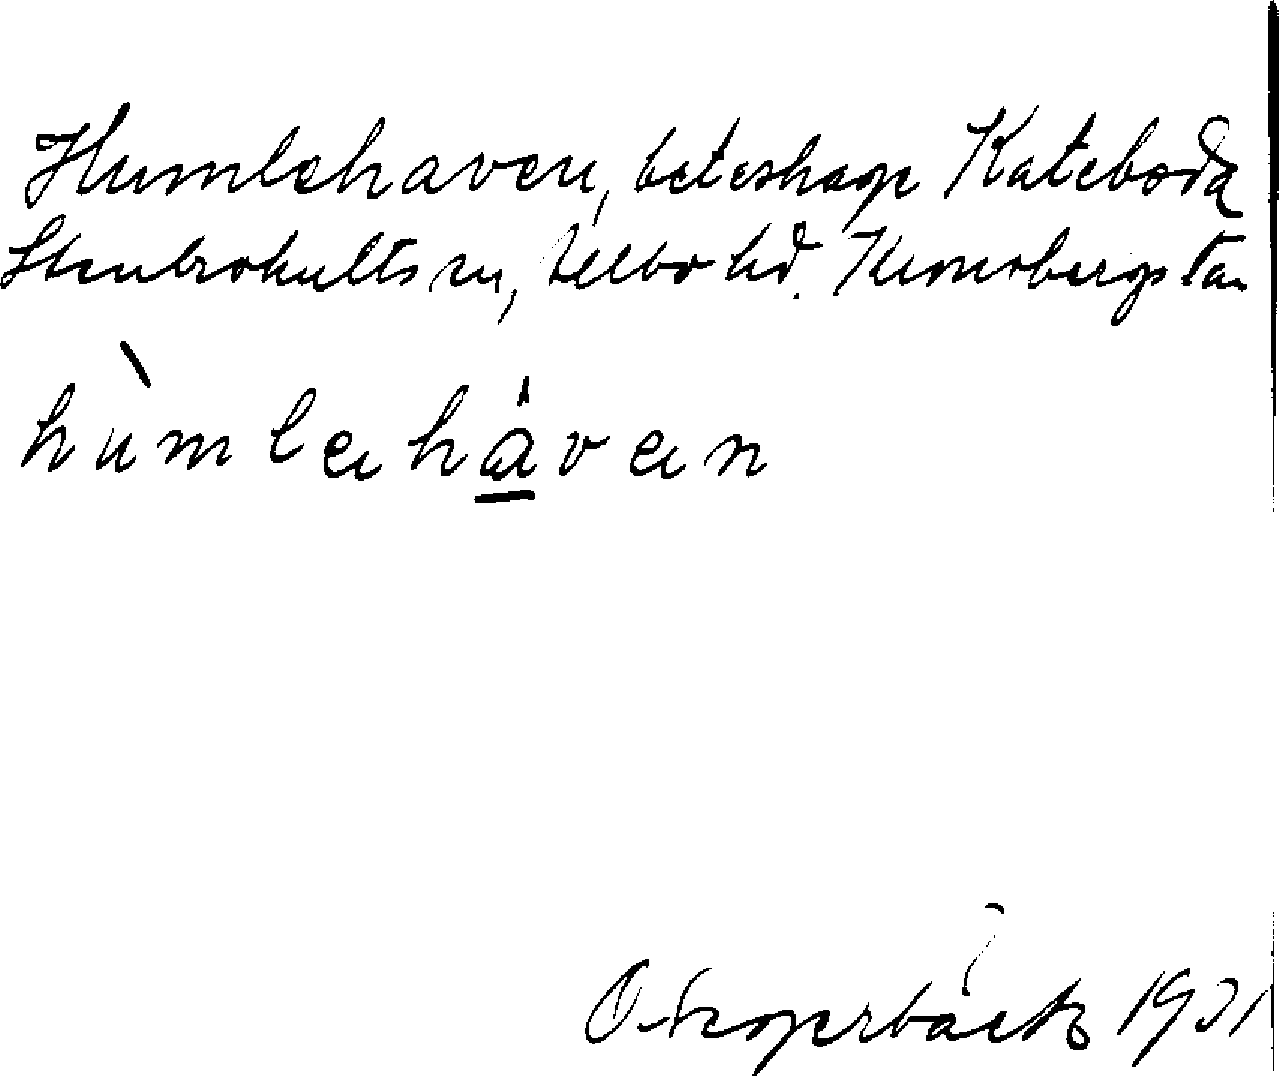 Humlehaven, beteshage Kateboda
Stenbrohults sn, Allbo hd. Kronobergs län
hùmleháven
O. Fagerbäck 1931